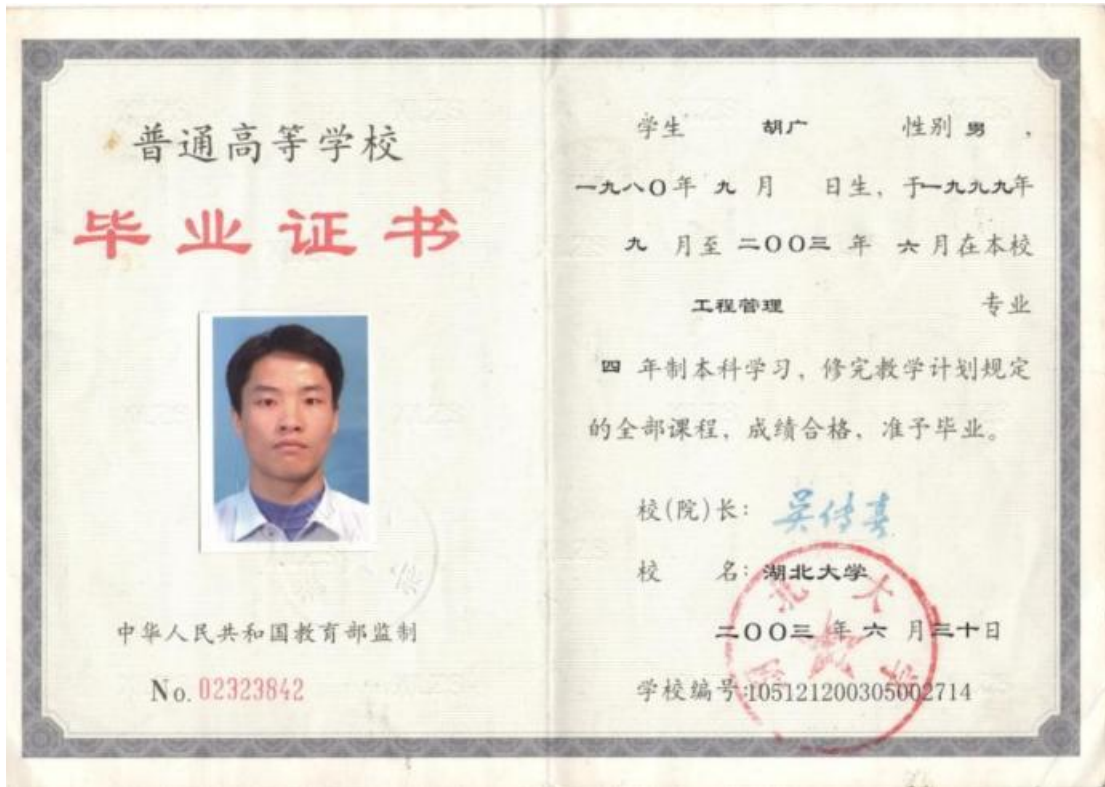 普通高等学校
毕业证书
中华人民共和国教育部监制
No. 02323842
学生 胡广 性别 男 ,
一九八〇年 九 月 日生, 于一九九九年
九 月至 二〇〇三 年 六 月在本校
工程管理 专业
四 年制本科学习, 修完教学计划规定
的全部课程, 成绩合格, 准予毕业。
校(院)长: 吴传喜
校 名: 湖北大学
二〇〇三 年 六 月三十日
学校编号:105121200305002714
湖北大学